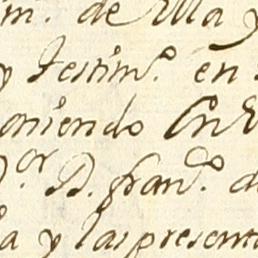 m.º de Villa y
y Testim.º en
oniendo En
or D. Fran.co d
a y las present